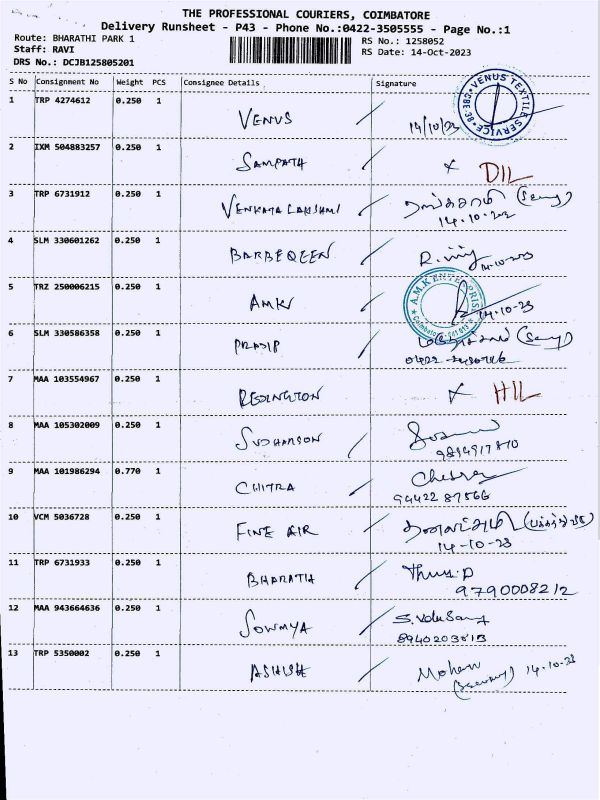 THE PROFESSIONAL COURIERS, COIMBATORE
Delivery Runsheet - P43 - Phone No.:0422-3505555 - Page No.:1
Route: BHARATHI PARK 1
RS No.: 1258052
Staff: RAVI
RS Date: 14-Oct-2023
DRS No.: DCJB125805201
S No Consignment No Weight PCS Consignee Details Signature
1 TRP 4274612 0.250 1 VENUS 14/10/23 VENUS TEXTILE SERVICE CBE-38
2 IXM 504883257 0.250 1 SAMPATH x DIL
3 TRP 6731912 0.250 1 VENKATA LAKSHMI
14.10.202
4 SLM 330601262 0.250 1 BARBEQEEN
14-10-2023
5 TRZ 250006215 0.250 1 AMK 14-10-23 A.M.K ENTERPRISES Coimbatore
6 SLM 330586358 0.250 1 PRADIP
7 MAA 103554967 0.250 1 REDINGTON x HIL
8 MAA 105302009 0.250 1 SUDHARSON
9894917870
9 MAA 101986294 0.770 1 CHITRA
94422 87566
10 VCM 5036728 0.250 1 FINE AIR
14-10-23
11 TRP 6731933 0.250 1 BHARATH
9790008212
12 MAA 943664636 0.250 1 SOWMYA
8940203813
13 TRP 5350002 0.250 1 ASHISH Mohan 14.10.23